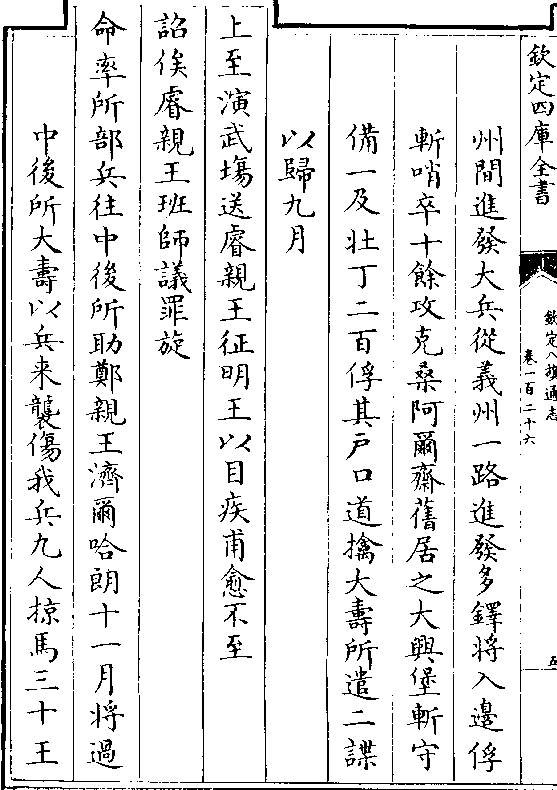 欽定四庫全書
欽定八旗通志
卷一百二十六
五
州間進發大兵從義州一路進發多鐸将入邊俘
斬哨卒十餘攻克桑阿爾齋舊居之大興堡斬守
備一及壯丁二百俘其戸口道擒大壽所遣二諜
以歸九月
上至演武塲送睿親王征明王以目疾甫愈不至
詔俟睿親王班師議罪旋
命率所部兵往中後所助鄭親王濟爾哈朗十一月将過
中後所大壽以兵来襲傷我兵九人掠馬三十王